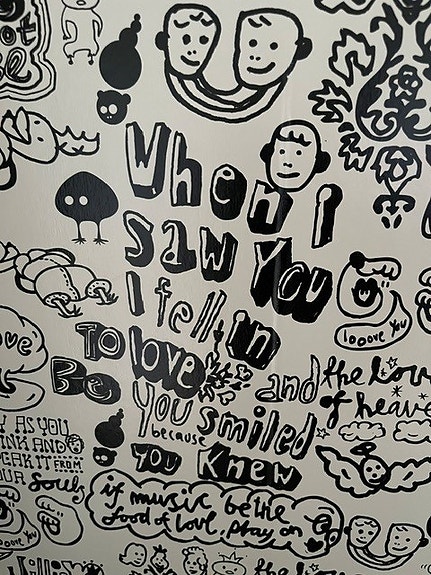 When I
saw You
I fell in
love
and
you smiled
because
You Knew
To
Be
if music be the
food of love, play on
looove you
the love
of heave
ove
Y AS YOU
INK AND
EAK IT FROM
OUR Souls
ove you
the love